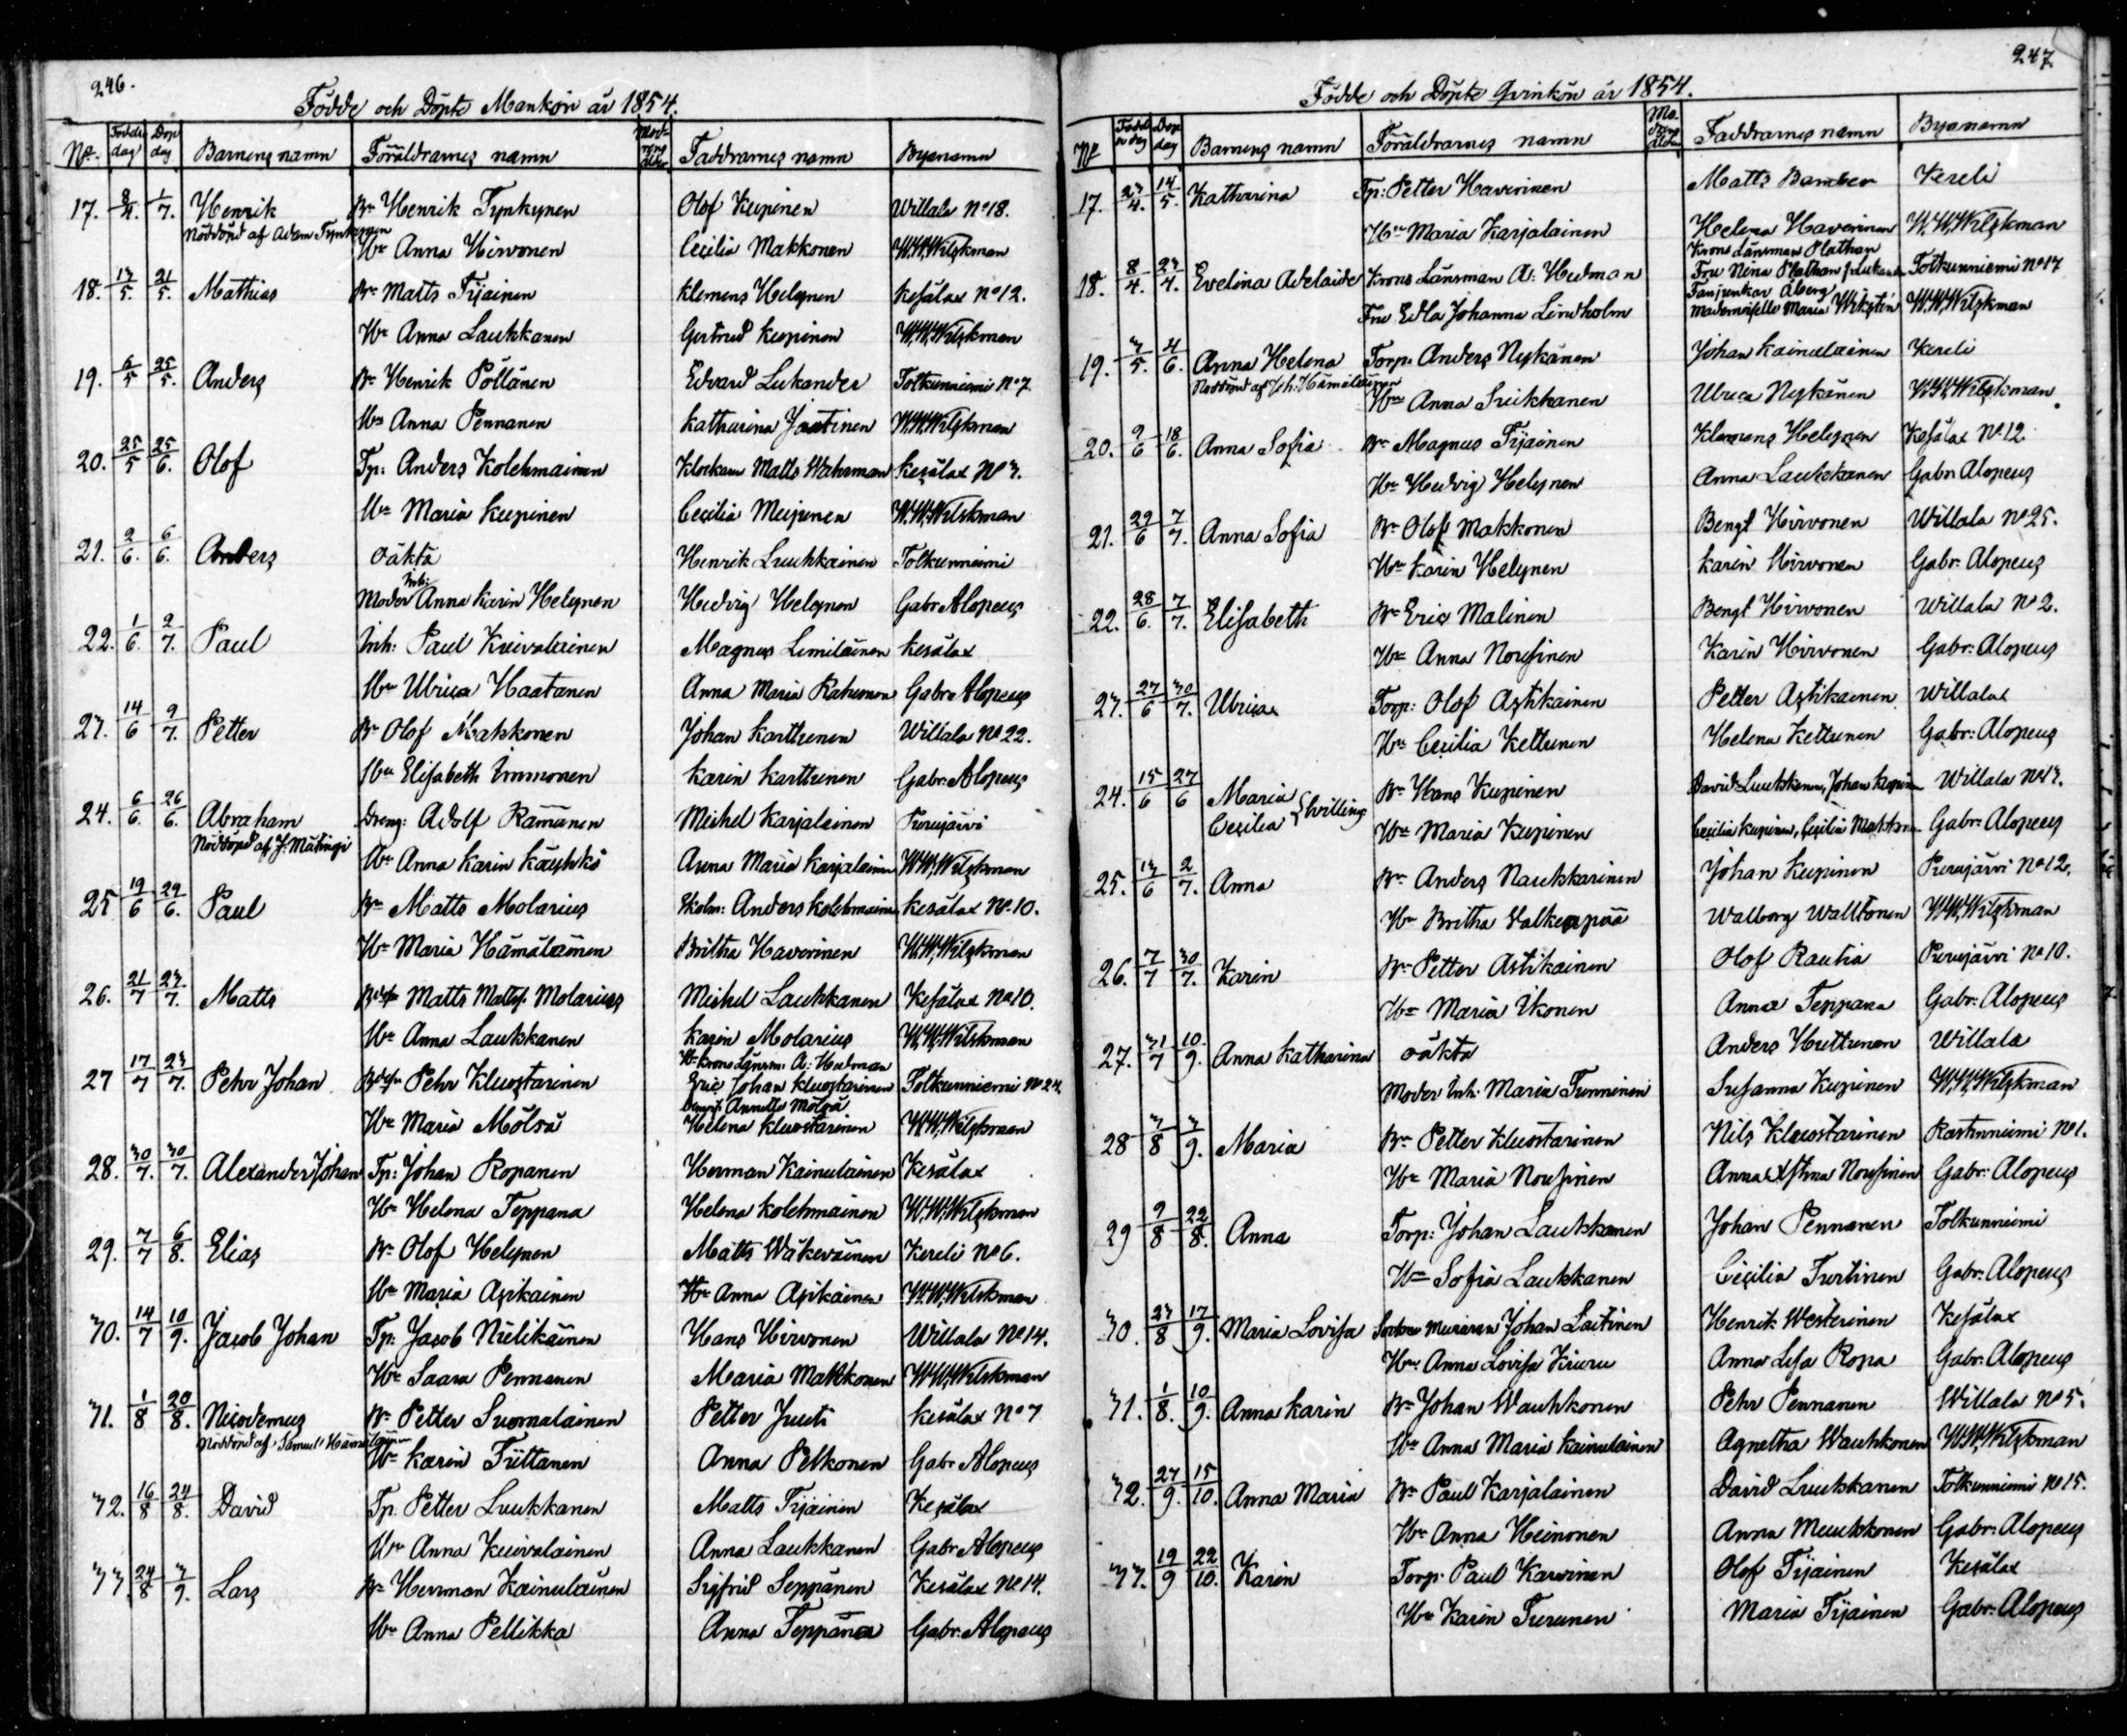 246.
Födde och Döpte Mankön år 1854.
No. Födelse dag Dop dag Barnens namn Föräldrarnes namn Moderns ålder Faddrarnes namn Byanamn
17. 8/4. 1/7. Henrik Bn Henrik Tynkynen Olof Kupinen Willala No 18.
Nöddöpt af Adam Tynkynen Hu Anna Hirvonen Cecilia Makkonen W.W.Wilskman
18. 13/5. 21/5. Mathias Bn Matts Tijainen Klemens Helynen Kesälax No 12.
Hu Anna Laukkanen Gertrud Kupinen W.W.Wilskman
19. 6/5 25/5. Anders Bn Henrik Pöllänen Edvard Lukander Tolkunniemi No 7
Hu Anna Pennanen Katharina Juutinen W.W.Wilskman
20. 25/5 25/6. Olof Tp: Anders Kolehmainen Klockaren Matts Wahrman Kesälax No 3.
Hu Maria Kupinen Cecilia Meipinen W.W.Wilskman
21. 2/6. 6/6. Anders oäkta Henrik Luukkainen Tolkunniemi
Moder Inh: Anna Karin Helynen Hedvig Helynen Gabr Alopeus
22. 1/6. 2/7. Paul Inh: Paul Kuivalainen Magnus Limiläinen Kesälax
Hu Ulrica Haatanen Anna Maria Rahunen Gabr Alopeus
23. 14/6 9/7. Petter Bn Olof Makkonen Johan Karttunen Willala No 22.
Hu Elisabeth Immonen Karin Karttunen Gabr. Alopeus
24. 6/6. 26/6. Abraham Dreng: Adolf Rämänen Michel Karjalainen Purujärvi
Nöddöpt af J. Mätingi Hu Anna Karin Käyhkö Anna Maria Karjalainen W.W.Wilskman
25 19/6 29/6. Paul Bn Matts Molarius Skolm: Anders Kolehmainen Kesälax No 10.
Hu Maria Hämäläinen Britha Haverinen W.W.Wilskman
26. 21/7 23/7. Matts Bds Matts Mattss. Molarius Michel Laukkanen Kesälax No 10.
Hu Anna Laukkanen Karin Molarius W.W.Wilskman
27 17/7 23/7. Pehr Johan Bdsn Pehr Kluostarinen Krono Länsm: A: Hedman Eric Johan Kluostarinen Tolkunniemi No 24.
Hu Maria Mölsä Annette Mölsä Helena Kluostarinen W.W.Wilskman
28. 30/7. 30/7. Alexander Johan Tp: Johan Ropanen Herman Kainulainen Kesälax
Hu Helena Teppana Helena Kolehmainen W.W.Wilskman
29. 7/7 6/8. Elias Bn Olof Helynen Matts Wäkeväinen Kereli No 6.
Hu Maria Asikainen Hu Anna Asikainen W.W.Wilskman
30. 14/7 10/9. Jacob Johan Tp: Jacob Nielikäinen Hans Hirvonen Willala No 14.
Hu Saara Pennanen Maria Makkonen W.W.Wilskman
31. 1/8 20/8. Nicodemus Bn Petter Suomalainen Petter Juuti Kesälax No 7
Nöddöpt af Samuel Hämäläinen Hu Karin Tiittanen Anna Pelkonen Gabr Alopeus
32. 16/8 24/8. David Tp. Petter Luukkanen Matts Tijainen Kesälax
Hu Anna Kuivalainen Anna Laukkanen Gabr Alopeus
33 24/8 3/9. Lars Bn Herman Kainulainen Sigfrid Seppänen Kesälax No 14.
Hu Anna Pellikka Anna Teppana Gabr. Alopeus
247
Födde och Döpte Qvinkön år 1854.
No Födelse dag Dop dag Barnens namn Föräldrarnes namn Moderns ålder Faddrarnes namn Byanamn
17. 23/4. 14/5. Katharina Tp: Petter Haverinen Matts Bamber Kereli
Hu Maria Karjalainen Helena Haverinen W.W.Wilskman
18. 8/4. 23/4. Evelina Adelaide Krono Länsman A: Hedman Krono Länsman Plathan Fru Nina Plathan f. Lukander Tolkunniemi No 17
Fru Edla Johanna Lindholm Fanjunkar Åberg Mademoiselle Maria Wikstén W.W.Wilskman
19. 3/5. 4/6. Anna Helena Torp. Anders Nykänen Johan Kainulainen Kereli
Nöddöpt af Joh. Hämäläinen Hu Anna Suikkanen Ulrica Nykänen W.W.Wilskman
20. 9/6 18/6. Anna Sofia Bn Magnus Tijainen Klemens Helynen Kesälax No 12
Hu Hedvig Helynen Anna Laukkanen Gabr. Alopeus
21. 29/6 7/7. Anna Sofia Bn Olof Makkonen Bengt Hirvonen Willala No 25.
Hu Karin Helynen Karin Hirvonen Gabr. Alopeus
22. 28/6. 7/7. Elisabeth Bn Eric Malinen Bengt Hirvonen Willala No 2.
Hu Anna Nousinen Karin Hirvonen Gabr: Alopeus
23. 27/6 30/7. Ulrica Torp: Olof Astikainen Petter Astikainen Willala
Hu Cecilia Kettunen Helena Kettunen Gabr: Alopeus
24. 15/6 27/6 Maria Cecilia Tvilling Bn Hans Kupinen David Luukkanen, Johan Kupinen Willala No 13.
Hu Maria Kupinen Cecilia Kupinen, Cecilia Makkonen Gabr: Alopeus
25. 13/6 2/7. Anna Bn Anders Naukkarinen Johan Kupinen Purujärvi No 12.
Hu Britha Valkeapää Walborg Walttonen W.W.Wilskman
26. 7/7 30/7. Karin Bn Petter Astikainen Olof Rautia Purujärvi No 10.
Hu Maria Ikonen Anna Teppana Gabr: Alopeus
27. 31/7 10/9. Anna Katharina oäkta Anders Huttunen Willala
Moder Inh. Maria Tunninen Susanna Kupinen W.W.Wilskman
28 3/8 3/9. Maria Bn Petter Kluostarinen Nils Kluostarinen Rastinniemi No 1.
Hu Maria Nousinen Anna Nousinen Gabr: Alopeus
29 9/8 22/8. Anna Torp: Johan Laukkanen Johan Pennanen Tolkunniemi
Hu Sofia Laukkanen Cecilia Turtinen Gabr: Alopeus
30. 23/8 17/9. Maria Lovisa Muraren Johan Laitinen Henrik Westerinen Kesälax
Hu Anna Lovisa Kiuru Anna Lisa Ropa Gabr: Alopeus
31. 1/8. 10/9. Anna Karin Bn Johan Wauhkonen Pehr Pennanen Willala No 5.
Hu Anna Maria Kainulainen Agnetha Wauhkonen W.W.Wilskman
32. 27/9. 15/10. Anna Maria Bn Paul Karjalainen David Luukkanen Tolkunniemi No 15.
Hu Anna Heinonen Anna Muukkonen Gabr: Alopeus
33. 19/9 22/10. Karin Torp: Paul Karvinen Olof Tijainen Kesälax
Hu Karin Turunen Maria Tijainen Gabr: Alopeus